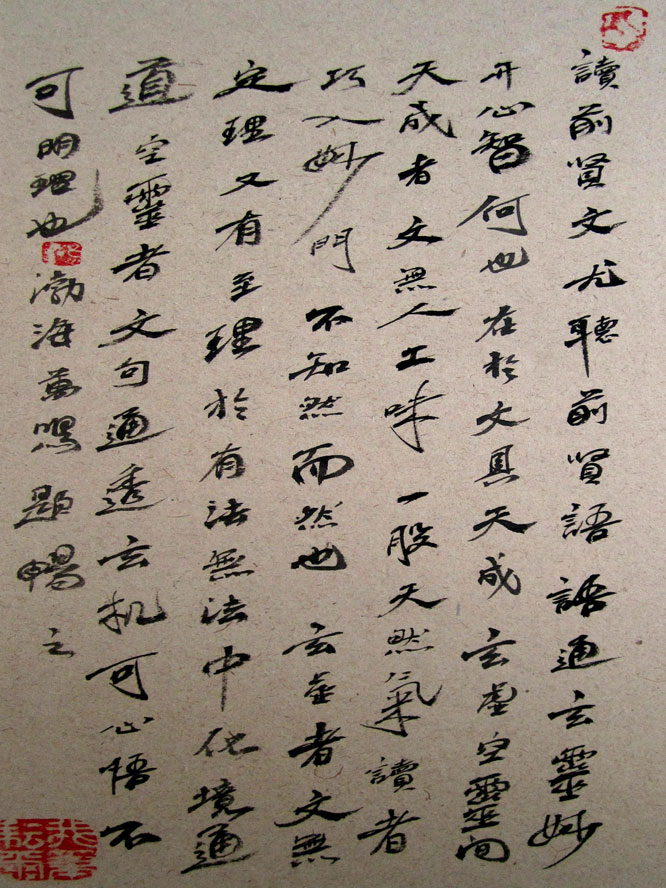 讀前贤文尤聽前贤語語通玄靈妙
开心智何也在於文具天成玄虚空靈间
天成者文無人工味一股天然氣讀者
巧入妙門不知然而然也玄虚者文無
定理又有至理於有法無法中化境通
道空靈者文句通透玄机可心悟不
可明理也渤海題暢之